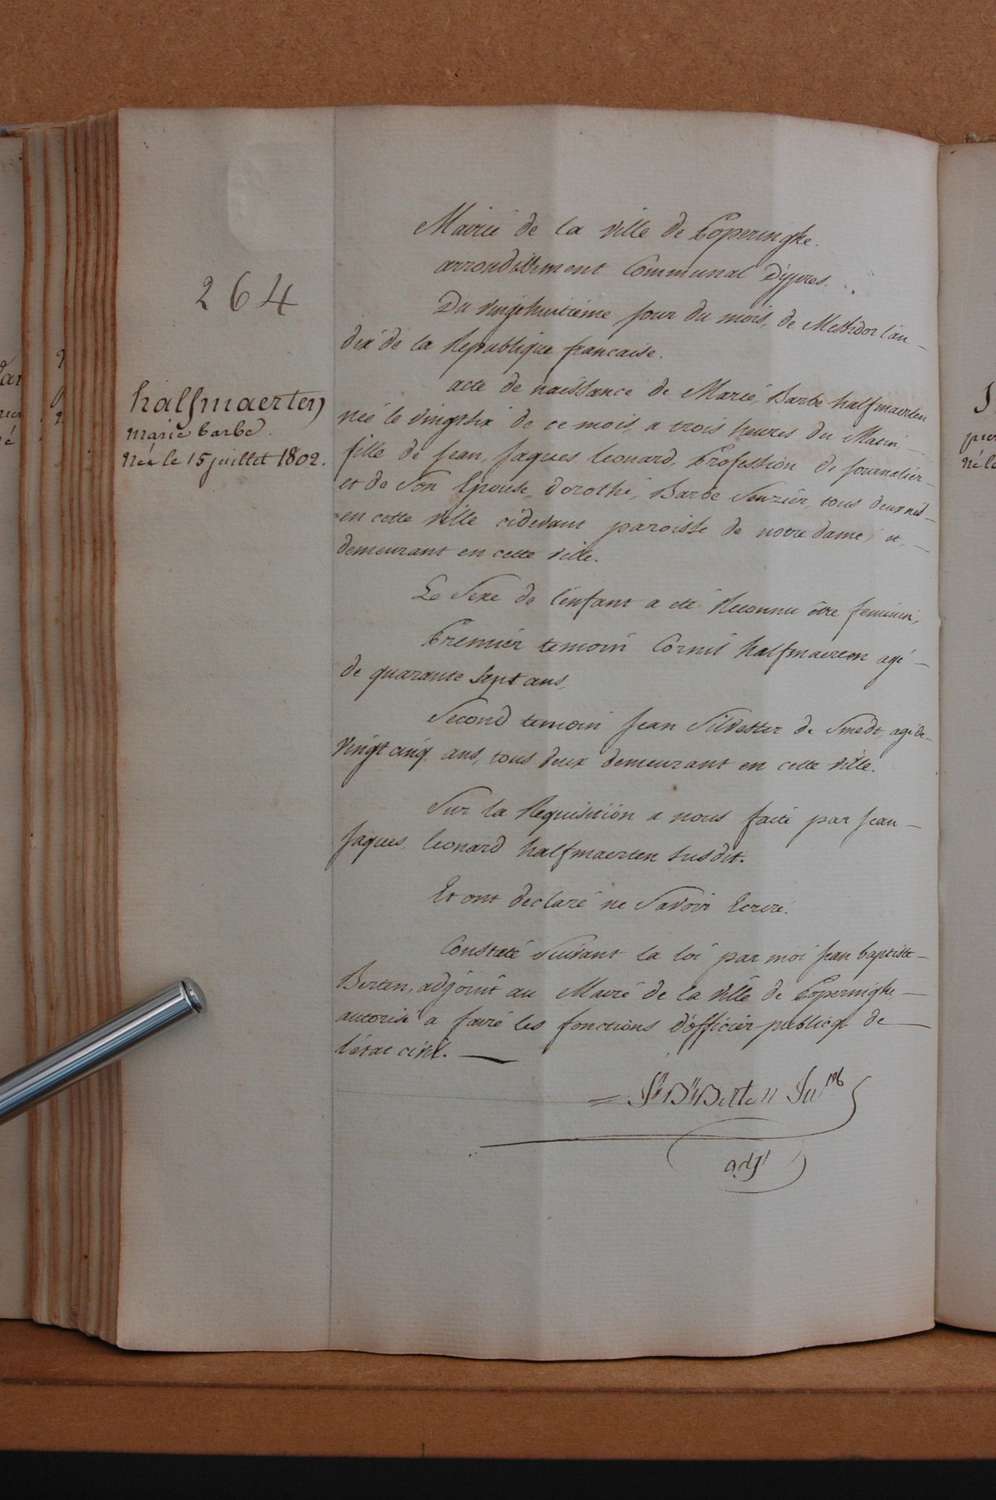 264
halfmaerten
marie barbe
Née le 15 juillet 1802.
Mairie de la ville de Poperinghe.
arrondissement Communal d'ypres.
Du vingthuitieme jour du mois de Messidor l'an
dix de la Republique francaise.
acte de naissance de Marie Barbe halfmaerten
née le vingtsix de ce mois a trois heures du Matin
fille de Jean Jaques Leonard, Profession de journalier
et de Son Epouse dorothé Barbe tous deux nés
en cette ville cidevant paroisse de notre dame et
demeurant en cette ville.
Le Sexe de l'enfant a eté Reconnu être feminin,
Premier temoin Cornil halfmaerten agé
de quarante Sept ans,
Second temoin Jean Silvester de Smedt agé de
vingt cinq ans, tous deux demeurant en cette ville.
Sur la Requisition a nous faite par Jean
Jaques Leonard halfmaerten susdit.
Et ont declaré ne Savoir Ecrire.
Constaté Suivant la loi par moi Jean baptiste
Berten, adjoint au Maire de la ville de Poperinghe
autorisé a faire les fonctions d'officier publicq de
l'état civil.
Berten
adjt